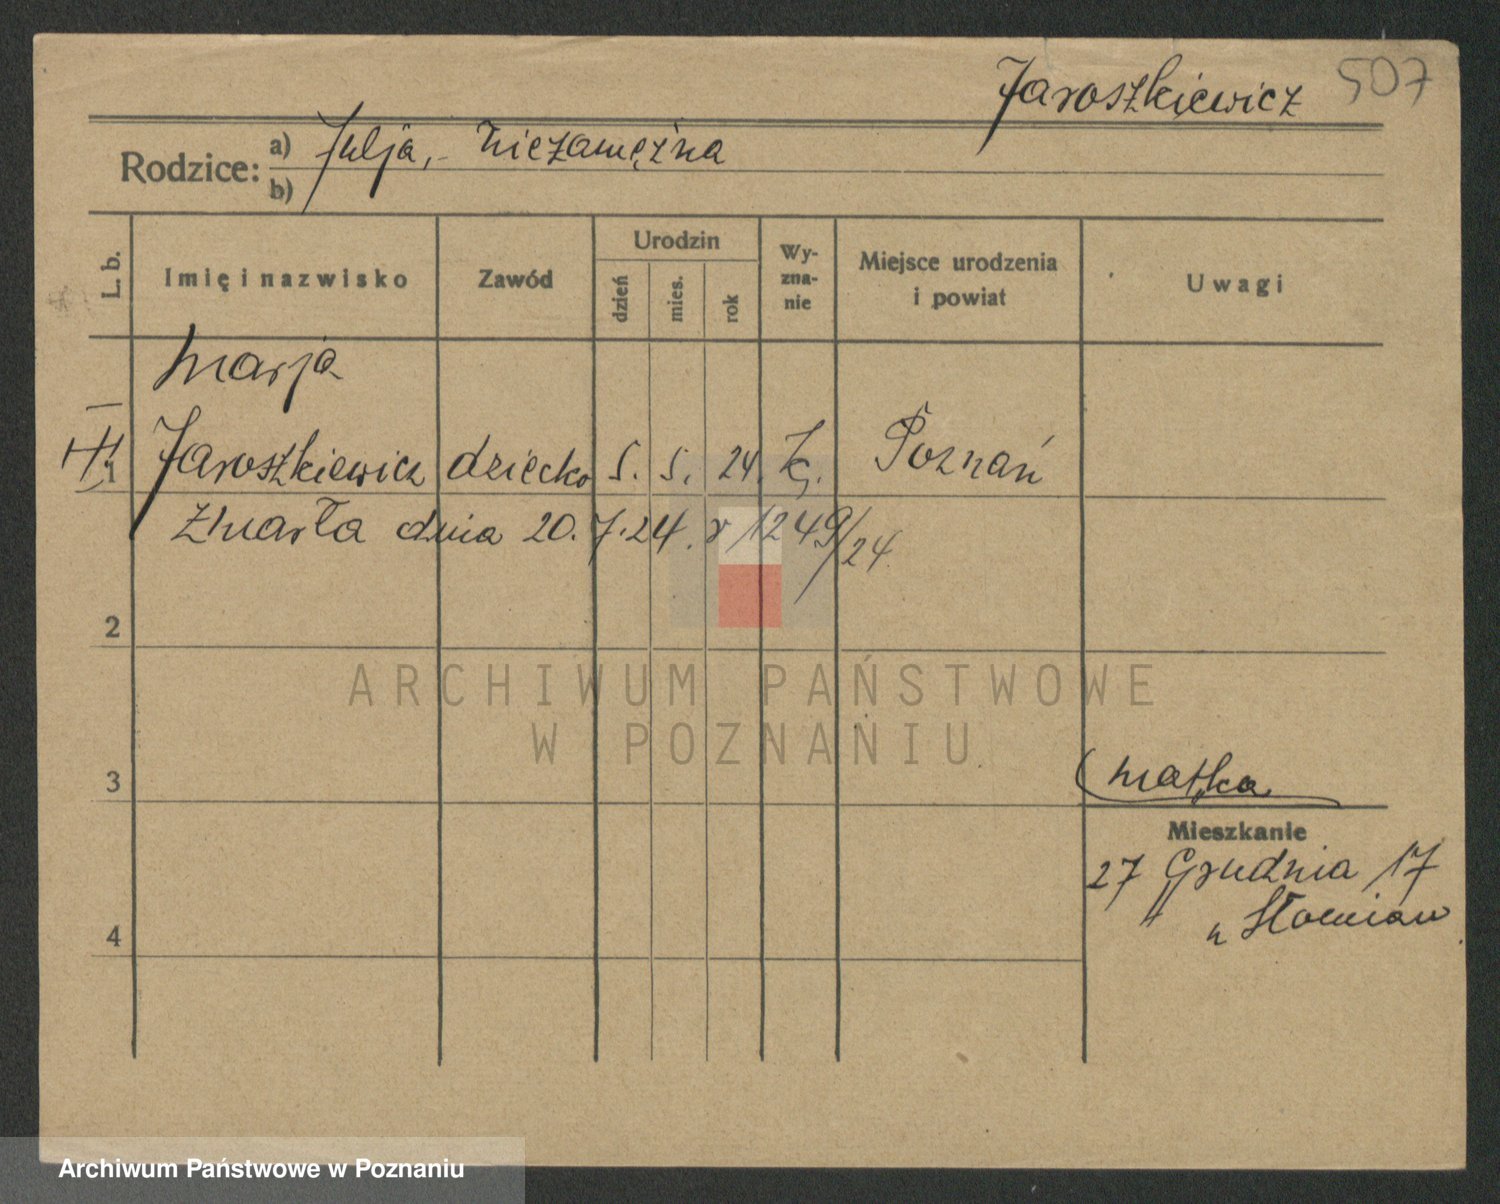 Jaroszkiewicz 507
Rodzice: a) Julja, - niezamężna
b)
L. b. Imię i nazwisko Zawód Urodzin dzień mies. rok Wy-zna-nie Miejsce urodzenia i powiat Uwagi
Marja
1 Jaroszkiewicz dziecko 5. 5. 24. Poznań
zmarła dnia 20.7.24. r 1249/24
2
ARCHIWUM PAŃSTWOWE
W POZNANIU
3
matka
Mieszkanie
27 Grudnia 17
4
Archiwum Państwowe w Poznaniu